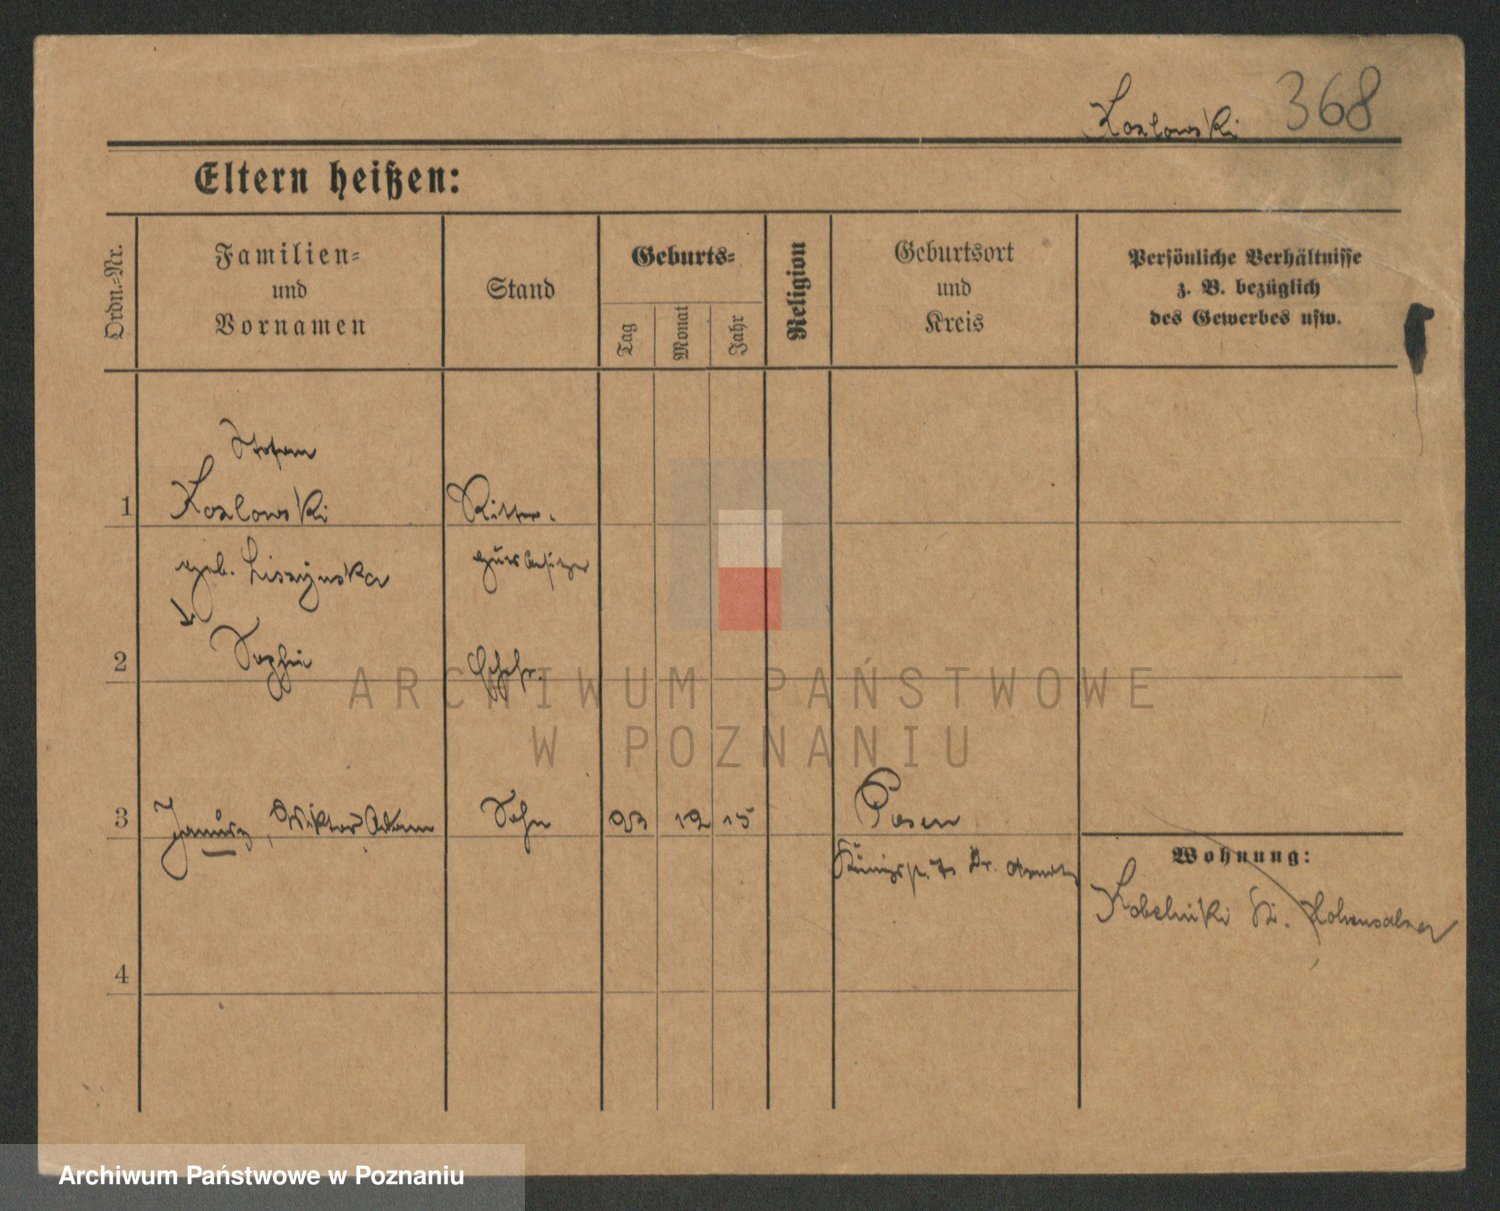 Kozlowski 368
Eltern heißen:
Ordn.-Nr.
Familien-
und
Vornamen
Stand
Geburts-
Tag
Monat
Jahr
Religion
Geburtsort
und
Kreis
Persönliche Verhältnisse
z. B. bezüglich
des Gewerbes usw.
Stefan
1 Kozlowski Ritter-
geb. Liszynska gutsbesitzer
2 Sophie Ehefr.
3 Janusz, Wiktor Adam Sohn 23 12 15 Posen
Königspl. Dr.
Wohnung:
Kobelniki Kr. Hohensalza
4
ARCHIWUM PAŃSTWOWE
W POZNANIU
Archiwum Państwowe w Poznaniu